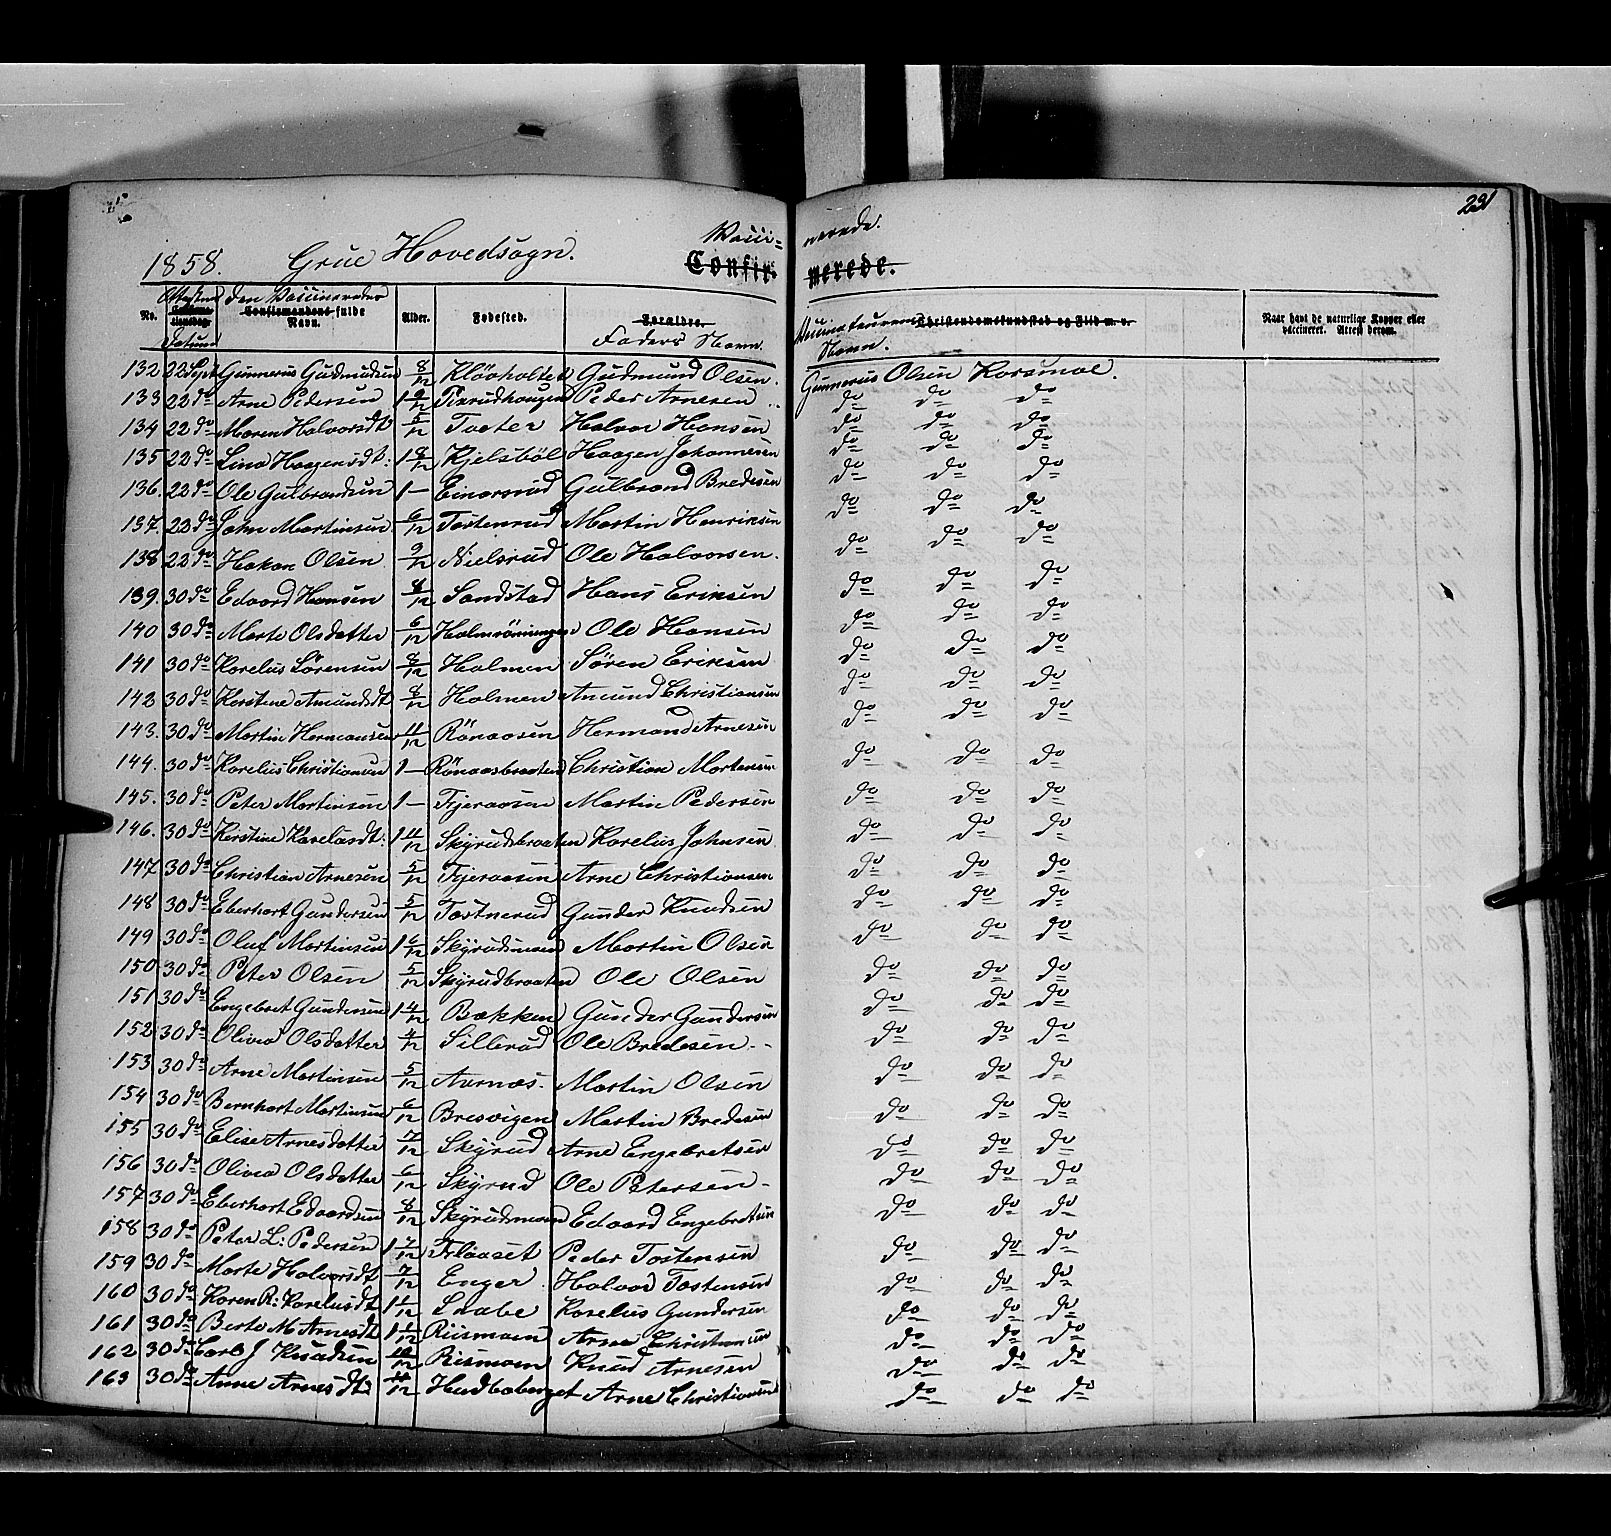 231
Vacci= nerede.
1858. Grue Hovedsogn. Confir= merede.
No. Attestens Datum Den Vaccineredes Confirmandens fulde Navn. Alder. Fødested. Forældre. Faders Navn. Vaccinateurens Navn. Christendomskundskab og Flid m. v. Naar havt de naturlige Kopper eller vaccineret. Attest derom.
132 22 Sept Gunnerus Gudmudsen 8/12 Kløvholtet Gudmund Olsen. Gunnerus Olsen Korsmoe.
133 22 do Arne Pedersen 1 9/12 Peder Arnesen do do do
134 22 do Maren Halvorsdt 5/12 Toeter Halvor Hansen do do do
135 22 do Lina Haagensdt: 1 8/12 Kjelsbøl Haagen Johannesen do do do
136. 22 do Ole Gulbrandsen 1 – Einarsrud Gulbrand Bredesen do do do
137. 22 do John Martinsen 6/12 Tostenrud Martin Henriksen do do do
138 22 do Hakon Olsen 9/12 Nielsrud Ole Halvorsen. do do do
139. 30 do Edvard Hansen 8/12 Sandstad Hans Eriksen do do do
140 30 do Marte Olsdatter 6/12 Holmrönningen Ole Hansen do do do
141 30 do Karelius Sörensen 8/12 Holmen Sören Eriksen do do do
142 30 do Kerstine Amundsdt 8/12 Holmen Amund Christiansen do do do
143. 30 do Martin Hermansen 11/12 Rönaasen Hermand Arnesen do do do
144. 30 do Karelius Christiansen 1 – Rönaasbraaten Christian Martensen do do do
145. 30 do Peter Martinsen 1 – Tjeraasen Martin Pedersen do do do
146. 30 do Kerstine Kareliusdt: 1 11/12 Skyrudsbraaten Karelius Johnsen do do do
147 30 do Christian Arnesen 5/12 Tjeraasen Arne Christiansen do do do
148 30 do Eberhart Gundersen 5/12 Tostnerud Gunder Knudsen do do do
149 30 do Oluf Martinsen 1 6/12 Skyrudsmoen Martin Olsen do do do
150 30 do Peter Olsen 5/12 Skyrudbraaten Ole Olsen do do do
151 30 do Engebret Gundersen 1 4/12 Bakken Gunder Gundersen do do do
152 30 do Olivia Olsdatter 4/12 Sillerud Ole Bredesen do do do
153 30 do Arne Martinsen 5/12 Aarnæs. Martin Olsen do do do
154 30 do Bernhart Martinsen 6/12 Bresvigen Martin Bredesen do do do
155 30 do Elise Arnesdatter 7/12 Skyrud Arne Engebretsen do do do
156 30 do Olivia Olsdatter 6/12 Skyrud Ole Petersen do do do
157 30 do Eberhart Edvardsen 8/12 Skyrudsmoen Edvard Engebretsen do do do
158 30 do Peter L: Pedersen 1 7/12 Peder Tostensen do do do
159 30 do Marte Halvorsdt 7/12 Enger Halvor Tostensen do do do
160 30 do Karen R: Kareliusdt 1 1/12 Snabe Karelius Gundersen do do do
161 30 do Berte M Arnesdt 1 1/12 Riismoen Arne Christiansen do do do
162 30 do Carl J Knudsen 10/12 Riismoen Knud Arnesen do do do
163 30 do Anne Arnesdt: 11/12 Arne Christiansen do do do